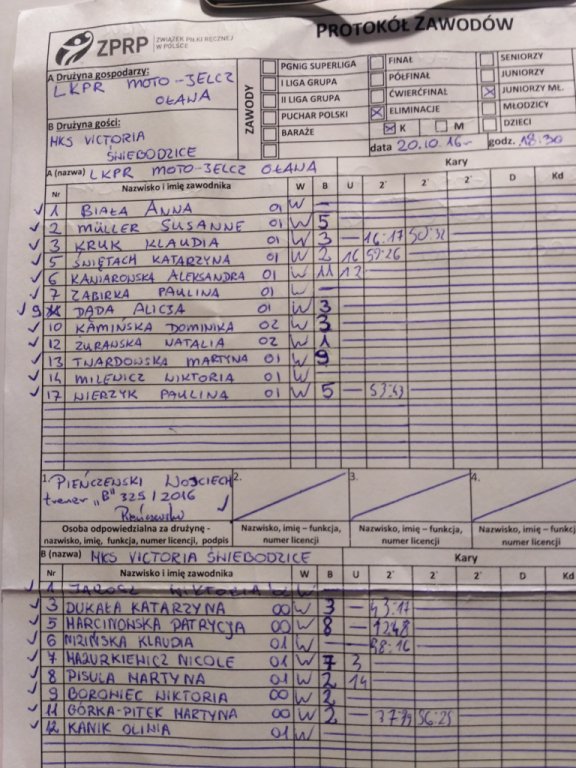 PROTOKÓŁ ZAWODÓW
ZPRP ZWIĄZEK PIŁKI RĘCZNEJ W POLSCE
A Drużyna gospodarzy:
LKPR MOTO-JELCZ
OŁAWA
B Drużyna gości:
MKS VICTORIA
ŚWIEBODZICE
ZAWODY
PGNiG SUPERLIGA
I LIGA GRUPA
II LIGA GRUPA
PUCHAR POLSKI
BARAŻE
FINAŁ
PÓŁFINAŁ
ĆWIERĆFINAŁ
ELIMINACJE
K M
SENIORZY
JUNIORZY
JUNIORZY MŁ.
MŁODZICY
DZIECI
data 20.10.16 godz. 18.30
A (nazwa) LKPR MOTO-JELCZ OŁAWA Kary
Nr Nazwisko i imię zawodnika W B U 2' 2' 2' D Kd
1 BIAŁA ANNA 01 W –
2 MÜLLER SUSANNE 01 W 5
3 KRUK KLAUDIA 01 W 3 – 16:17 50:32
5 ŚWIĘTACH KATARZYNA 01 W 2 16 59:26
6 KAWIAROWSKA ALEKSANDRA 01 W 11 12
7 ZABIRKA PAULINA 01 W –
9 DĄDA ALICJA 01 W 3
10 KAMIŃSKA DOMINIKA 02 W 3
12 ŻURAWSKA NATALIA 02 W 1
13 TWARDOWSKA MARTYNA 01 W 9
14 MILEWICZ WIKTORIA 01 W –
17 WIERZYK PAULINA 01 W 5 – 53:43
1. PIEŃCZEWSKI WOJCIECH
trener „B" 325/2016
2.
3.
4.
Osoba odpowiedzialna za drużynę -
nazwisko, imię, funkcja, numer licencji, podpis
Nazwisko, imię – funkcja,
numer licencji
Nazwisko, imię – funkcja,
numer licencji
Nazwisko, imię – funkcja,
numer licencji
B (nazwa) MKS VICTORIA ŚWIEBODZICE Kary
Nr Nazwisko i imię zawodnika W B U 2' 2' 2' D Kd
1 JAROSZ WIKTORIA W
3 DUKAŁA KATARZYNA 00 W 3 – 43:17
5 MARCINOWSKA PATRYCJA 00 W 8 – 12:48
6 NIZIŃSKA KLAUDIA 01 W – 38:16
7 MAZURKIEWICZ NICOLE 01 W 7 3
8 PISULA MARTYNA 01 W 2 14
9 BOROWIEC WIKTORIA 00 W 2
11 GÓRKA-PITEK MARTYNA 00 W 2 – 56:25
12 KANIK OLIWIA 01 W